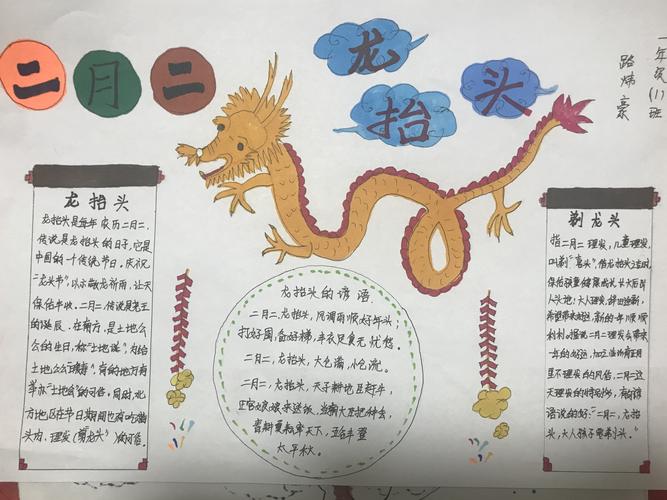 二月二
龙抬头
一年级(1)班
路炜豪
龙抬头
龙抬头是每年农历二月二,
传说是龙抬头的日子,它是
中国的一个传统节日。庆祝
"龙头节",以示敬龙祈雨,让天
保佑丰收。二月二,传说是尧王
的诞辰。在南方,是土地公
公的生日,称"土地诞",为给
土地公公"暖寿",有的地方有
举办"土地会"的习俗。同时,北
方地区在节日期间也有吃猪
头肉、理发(剪龙头)的习俗。
龙抬头的谚语
二月二,龙抬头,风调雨顺好年头;
打好囤,备好梯,丰衣足食无忧愁。
二月二,龙抬头,大仓满,小仓流。
二月二,龙抬头,天子耕地臣赶牛,
正宫娘娘来送饭,当朝大臣把种丢,
春耕夏耘率天下,五谷丰登
太平秋。
剃龙头
指二月二理发,儿童理发,
叫剃"喜头",借龙抬头之时,
保佑孩童健康成长,长大后出
人头地;大人理发,辞旧迎新,
希望带来好运,新的一年顺顺
利利。据说二月二理发会带来
一年的好运,
里不理发的风俗,二月二这
天理发的特别多,有俗谚
语说的好:"二月二,龙抬
头,大人孩子要剃头。"